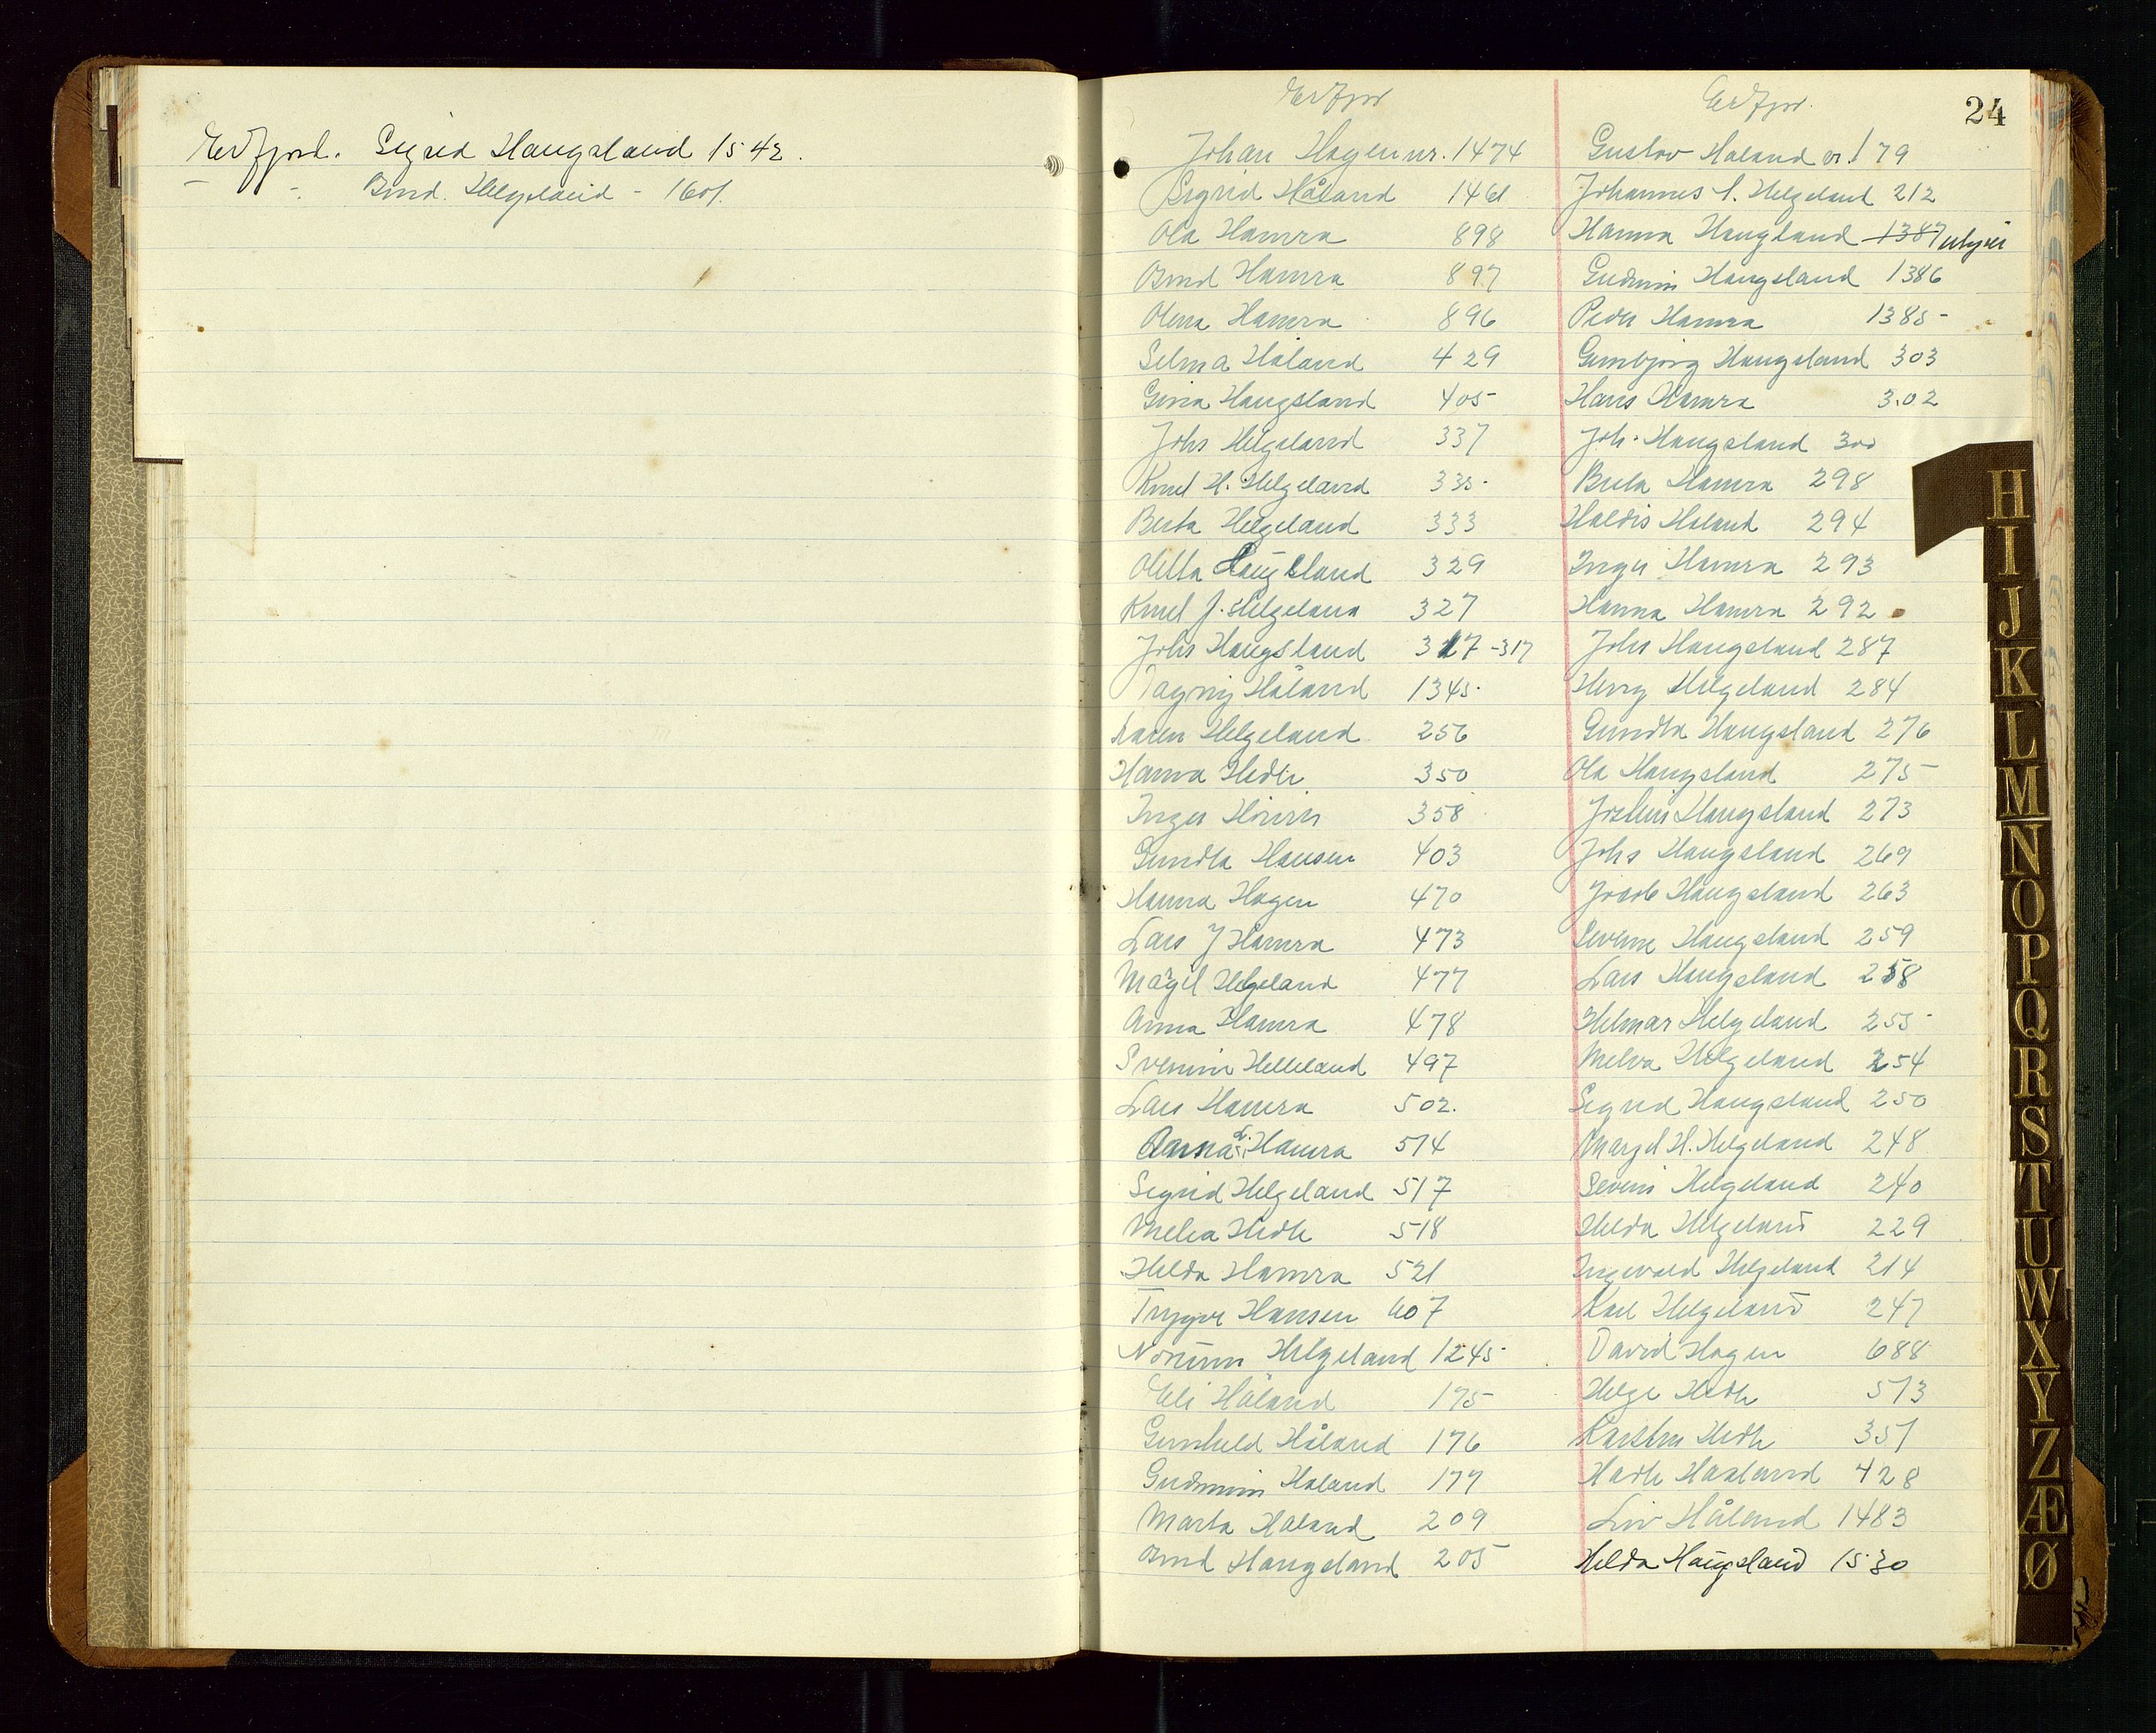 Erfjord. Sigrid Haugsland 1542.
— " — Bind. Helgeland - 1601.
24
Erfjord
Johan Hagen nr. 1474
Sigrid Håland 1461
Ola Hamra 898
Bind Hamra 897
Olena Hamra 896
Selma Håland 429
Gina Haugsland 405
Johs Helgeland 337
Knut H. Helgeland 335
Berta Helgeland 333
Oletta Haugsland 329
Knut J. Helgeland 327
Johs Haugsland 317-317
Dagny Håland 1345
Karen Helgeland 256
Hanna Hedle 350
Inger 358
Gundla Hansen 403
Hanna Hagen 470
Lars J Hamra 473
Magil Helgeland 477
Anna Hamra 478
Svenim Helleland 497
Lars Hamra 502.
Anna L. Hamra 514
Sigrid Helgeland 517
Melia Hedle 518
Helda Hamra 521
Trygve Hansen 607
Norunn Helgeland 1245
Eli Håland 175
Gunhild Håland 176
Gudmun Haland 177
Marta Haland 209
Bind Haugsland 205
Erfjord.
Gustav Haland nr. 179
Johannes S. Helgeland 212
Hanna Haugland 1387 utgår
Gudmun Haugsland 1386
Peder Hamra 1385
Gunbjørg Haugsland 303
Hans Hamra 302
Joh. Haugsland 300
Berta Hamra 298
Haldis Haland 294
Inger Hamra 293
Hanna Hamra 292
Johs Haugsland 287
Henry Helgeland 284
Gundla Haugsland 276
Ola Haugsland 275
Jostein Haugsland 273
Johs Haugsland 269
Jakob Haugsland 263
Severine Haugsland 259
Lars Haugsland 258
Helmar Helgeland 255
Melva Helgeland 254
Sigrid Haugsland 250
Margit H. Helgeland 248
Severin Helgeland 240
Helda Helgeland 229
Ingevald Helgeland 214
Karl Helgeland 247
David Hagen 688
Helge Hedle 513
Karsten Hedle 351
Haaland 428
Liv Håland 1483
Helda Haugsland 1530
H
I
J
K
L
M
N
O
P
Q
R
S
T
U
W
X
Y
Z
Æ
Ø